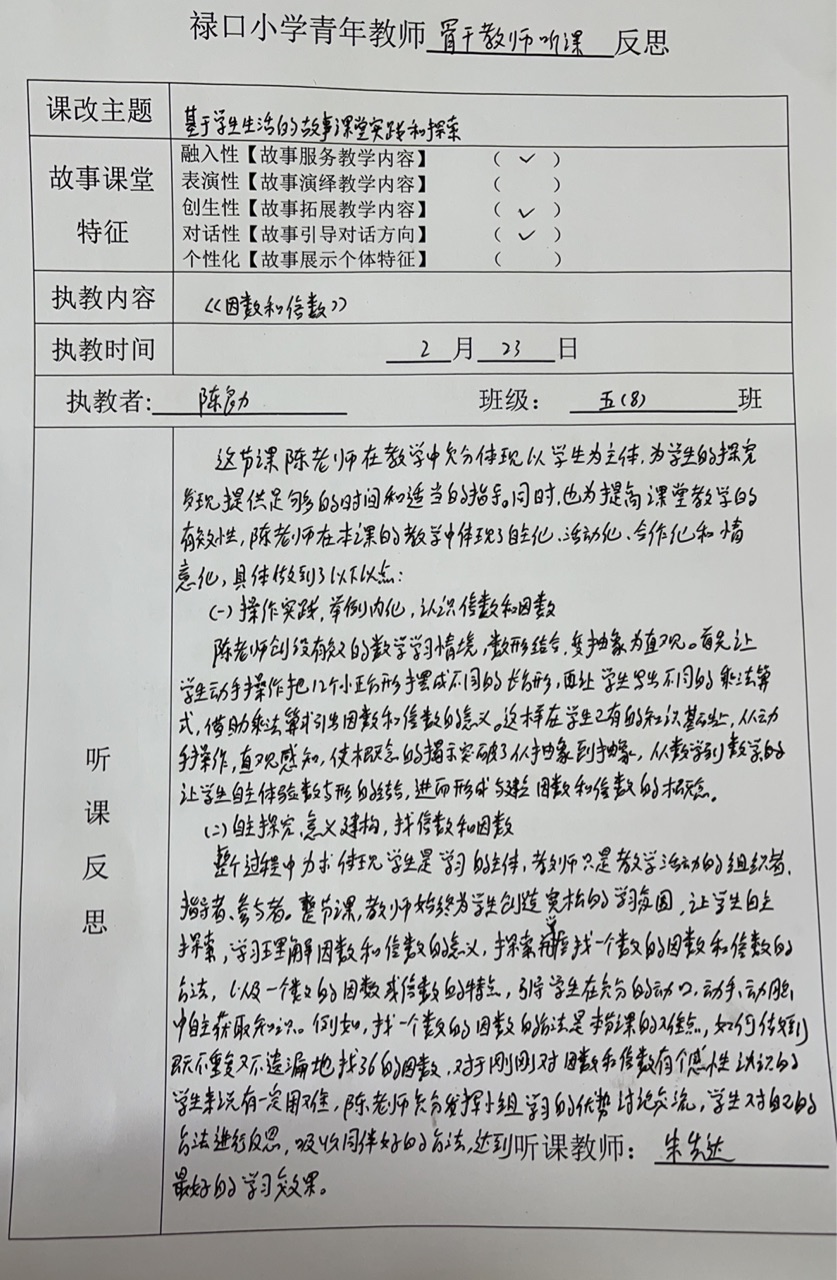 禄口小学青年教师 骨干教师听课 反思
课改主题 基于学生生活的故事课堂实践和探索
故事课堂特征
融入性【故事服务教学内容】 （ ✓ ）
表演性【故事演绎教学内容】 （ ）
创生性【故事拓展教学内容】 （ ✓ ）
对话性【故事引导对话方向】 （ ✓ ）
个性化【故事展示个体特征】 （ ）
执教内容 《因数和倍数》
执教时间 2 月 23 日
执教者: 陈勇力 班级： 五(8) 班
听课反思
这节课陈老师在教学中充分体现以学生为主体，为学生的探究
发现提供足够的时间和适当的指导。同时，也为提高课堂教学的
有效性，陈老师在本课的教学中体现了自主化、活动化、合作化和情
意化，具体做到了以下以点：
(一) 操作实践，举例内化，认识倍数和因数
陈老师创设有效的数学学习情境，数形结合，变抽象为直观。首先让
学生动手操作把12个小正方形摆成不同的长方形，再让学生写出不同的乘法算
式，借助乘法算式引出因数和倍数的意义。这样在学生已有的知识基础上，从动
手操作，直观感知，使概念的揭示突破了从抽象到抽象，从数学到数学的
让学生自主体验数与形的结合，进而形成与建立因数和倍数的概念。
(二) 自主探究、意义建构，找倍数和因数
整个过程中力求体现学生是学习的主体，教师只是教学活动的组织者、
指导者、参与者。整节课，教师始终为学生创造宽松的学习氛围，让学生自主
探索，学习理解因数和倍数的意义，探索并找一个数的因数和倍数的
方法，以及一个数的因数或倍数的特点，引导学生在充分的动口、动手、动脑
中自主获取知识。例如，找一个数的因数的方法是本节课的难点，如何做到
既不重复又不遗漏地找36的因数，对于刚刚对因数和倍数有个感性认识的
学生来说有一定困难，陈老师充分发挥小组学习的优势讨论交流，学生对自己的
方法进行反思，吸收同伴好的方法，达到
最好的学习效果。
听课教师：